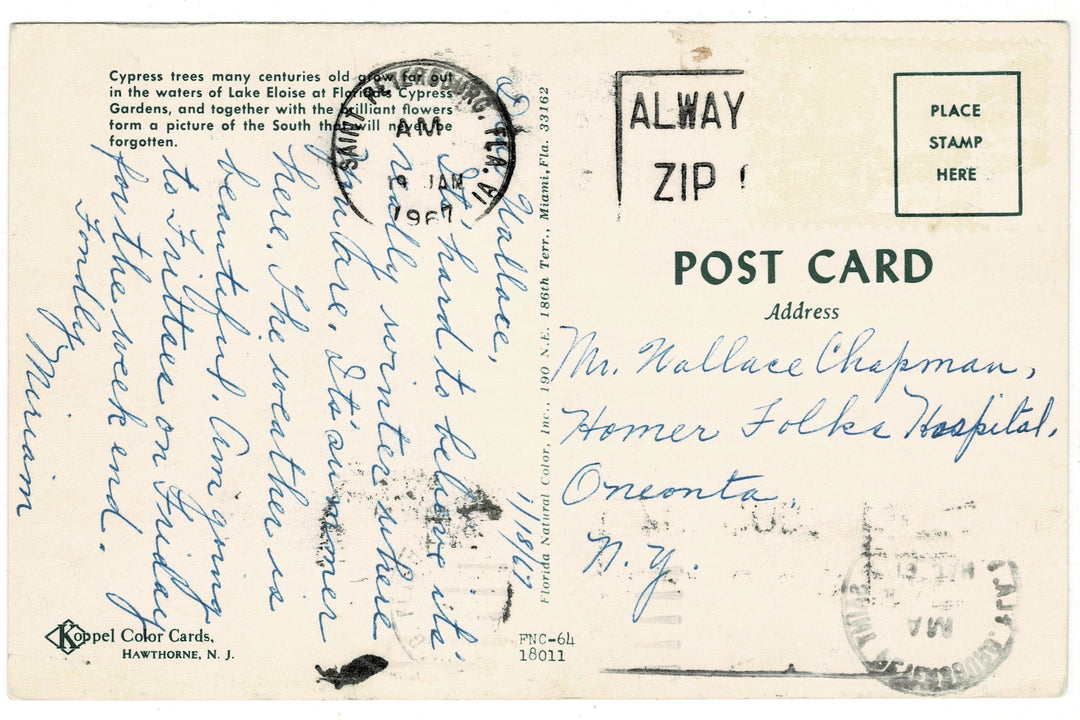 Cypress trees many centuries old grow far out
in the waters of Lake Eloise at Florida's Cypress
Gardens, and together with the brilliant flowers
form a picture of the South that will never be
forgotten.
SAINT PETERSBURG, FLA.
AM
19 JAN
1967
ALWAY
ZIP
PLACE
STAMP
HERE
POST CARD
Address
Mr. Wallace Chapman,
Homer Folks Hospital,
Oneonta,
N.Y.
1/18/67
Dear Wallace,
It's hard to believe it's
really winter where
you are. It's summer
here. The weather is
beautiful. Am going
to on Friday
for the week end.
Fondly
Miriam
Florida Natural Color, Inc., 190 N.E. 186th Terr., Miami, Fla. 33162
Koppel Color Cards,
HAWTHORNE, N. J.
FNC-64
18011
AM